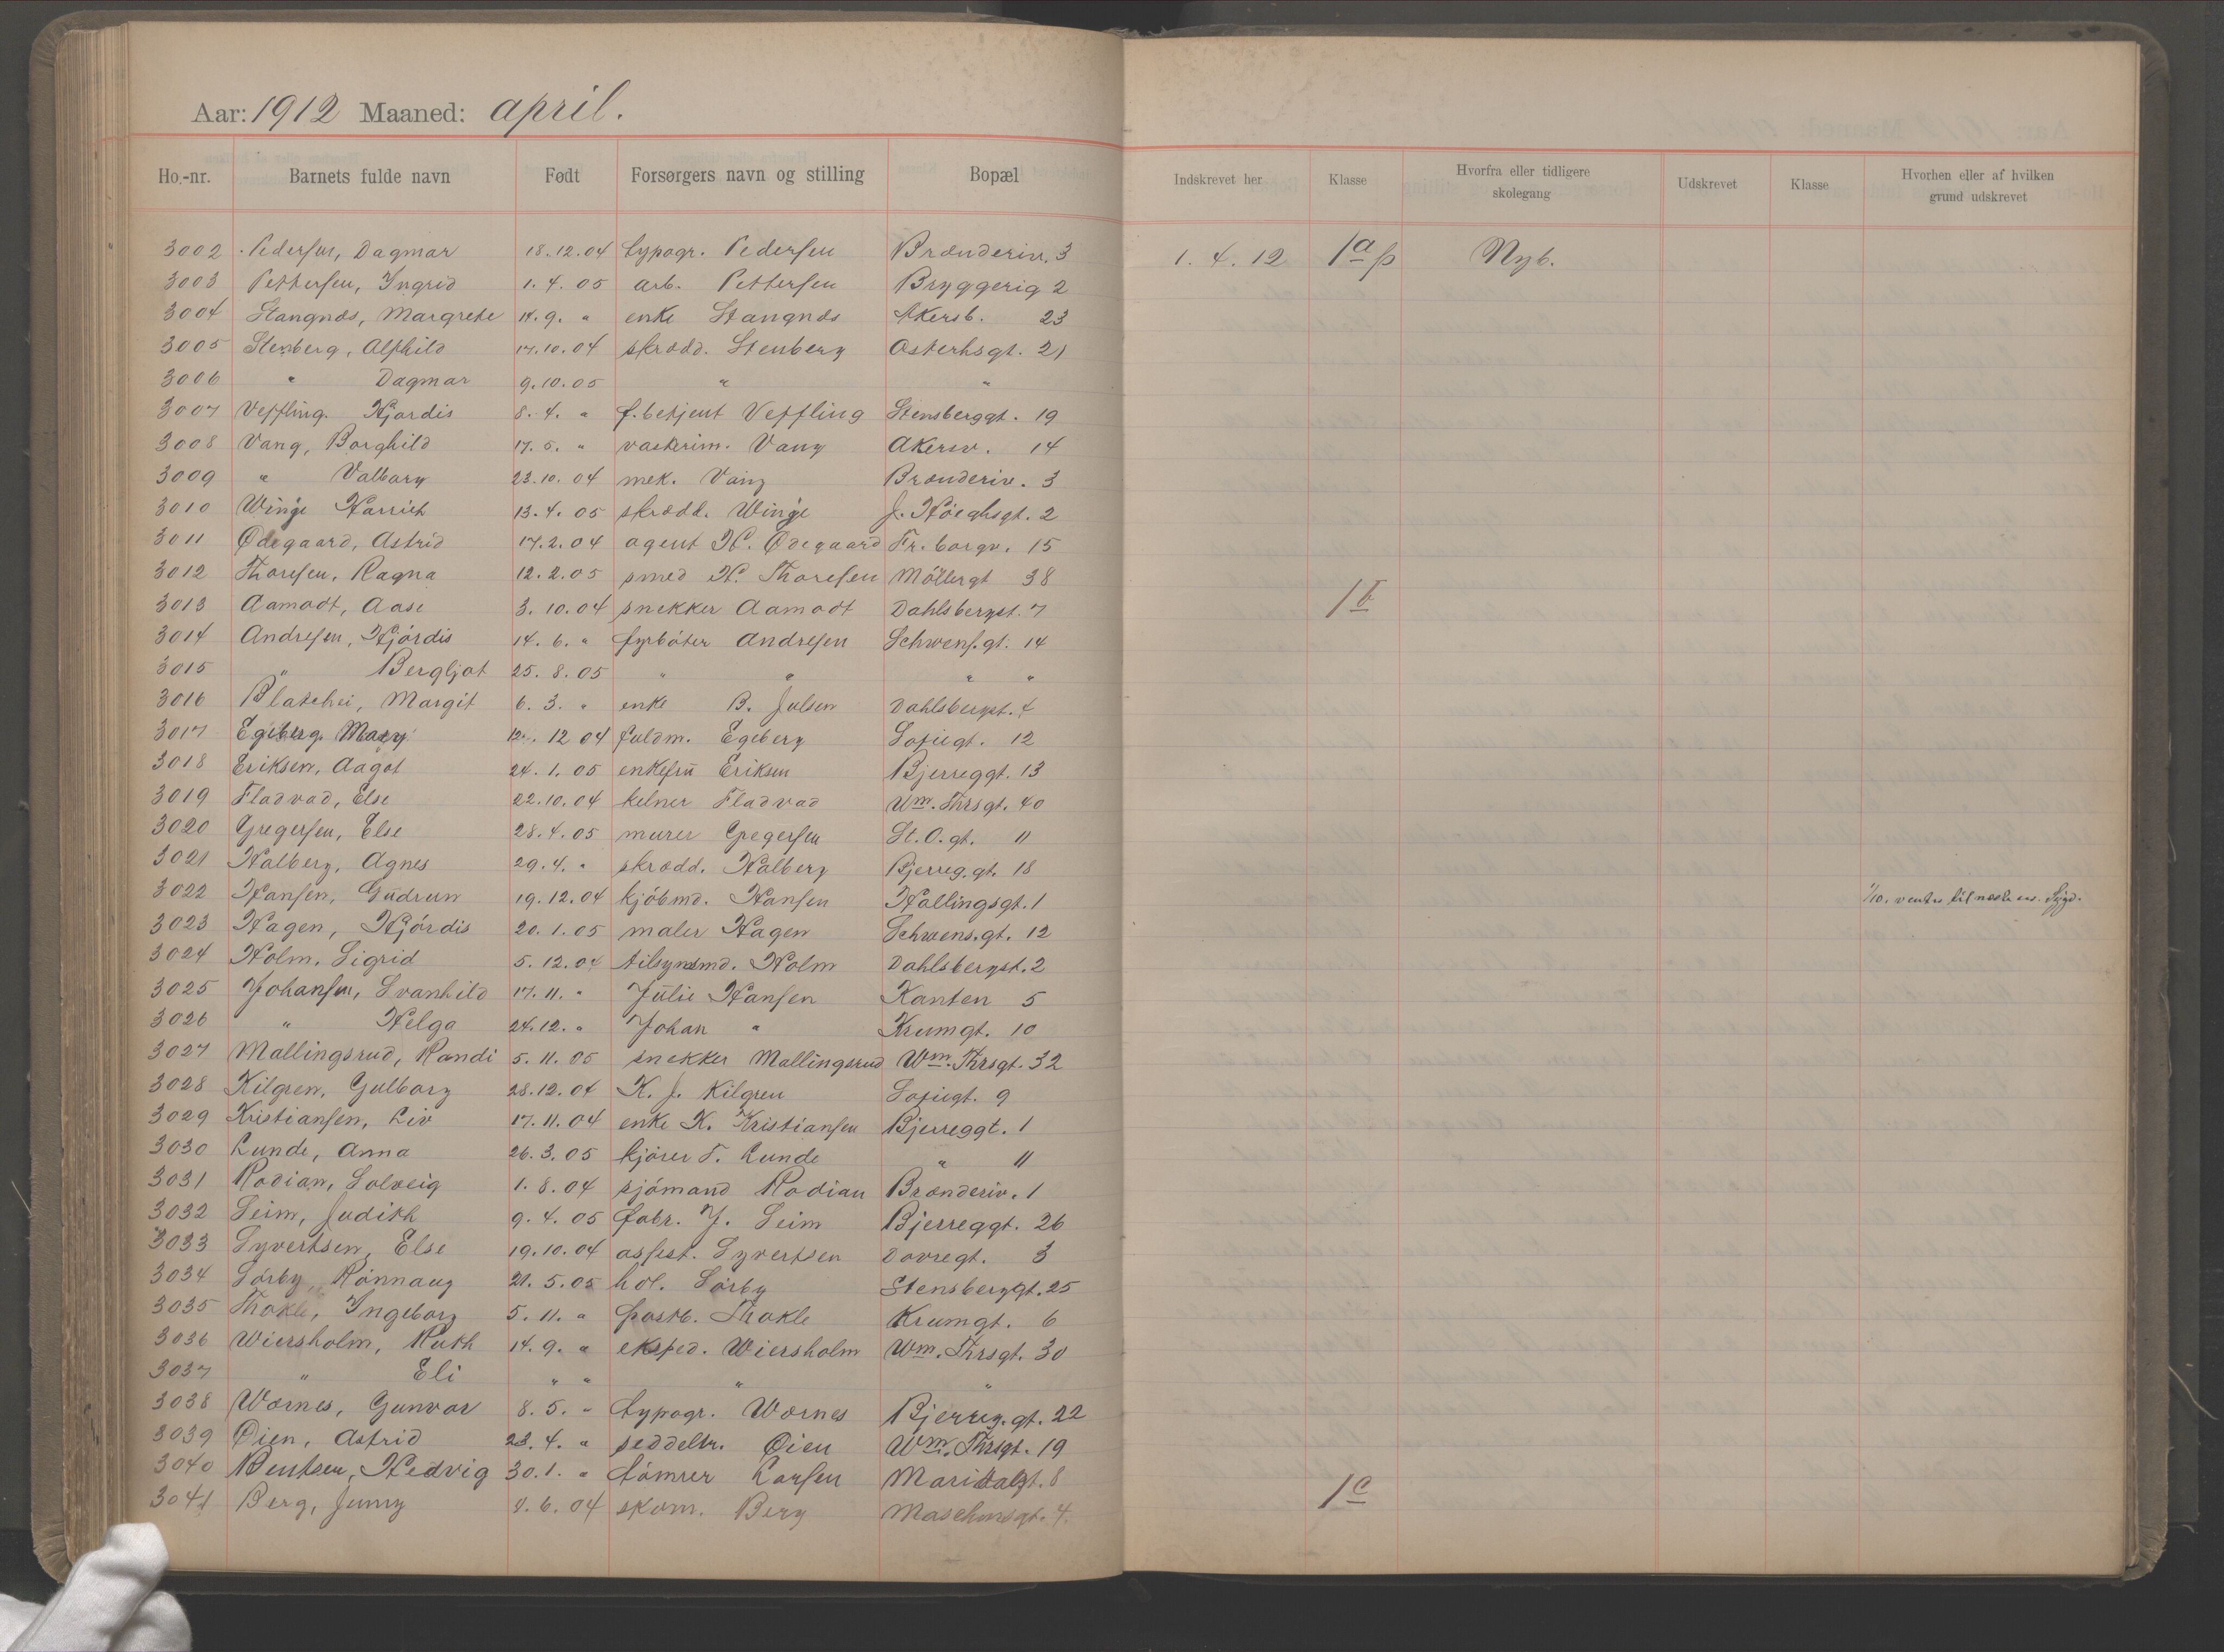 Aar: 1912 Maaned: april.
Ho.-nr. Barnets fulde navn Født Forsørgers navn og stilling Bopæl Indskrevet her Klasse Hvorfra eller tidligere skolegang Udskrevet Klasse Hvorhen eller af hvilken grund udskrevet
3002 Pedersen, Dagmar 18.12.04 typogr. Pedersen Brænderiv. 3 1. 4. 12 1a p Nyb.
3003 Pettersen, Yngrid 1. 4. 05 arb. Pettersen Bryggerig 2
3004 Stangnæs, Margrete 14. 9. " enke Stangnæs Akersb. 23
3005 Stenberg, Alfhild 17.10.04 skrædd. Stenberg Osterhsgt. 21
3006 " Dagmar 9.10.05 " "
3007 Veffling. Hjordis 8. 4. " f.betjent Veffling Stensberggt. 19
3008 Vang, Borghild 17. 5. " vaskerim. Vang Akersv. 14
3009 " Valborg 23.10.04 mek. Vang Brænderiv. 3
3010 Winge Harriet 13. 4. 05 skrædd. Winge J. Höeghsgt. 2
3011 Ødegaard, Astrid 17.2.04 agent H. Ødegaard Fr.borgv. 15
3012 Thoresen, Ragna 12.2.05 smed H. Thoresen Möllergt 38
3013 Aamodt, Aase 3. 10.04 snekker Aamodt Dahlsbergst. 7 1b
3014 Andresen, Hjördis 14. 6. " fyrböter Andresen Schwens.gt. 14
3015 " Bergljot 25. 8. 05 " " " "
3016 Blatchei, Margit 6. 3. " enke B. Julsen Dahlsbergst. 4
3017 Egeberg. Mary 12. 12 04 fuldm. Egeberg Sofiegt. 12
3018 Eriksen, Aagot 24. 1. 05 enkefru Eriksen Bjerreggt. 13
3019 Fladvad, Else 22.10.04 kelner Fladvad Wm. Thrsgt. 40
3020 Gregersen, Else 28.4.05 murer Gregersen St. O. gt. 11
3021 Halberg, Agnes 29.4. " skrædd. Halberg Bjerreg.gt. 18
3022 Hansen, Gudrun 19.12.04 kjöbmd. Hansen Hallingsgt. 1 1/10. venter til næste aar. Syg.
3023 Hagen, Hjördis 20. 1. 05 maler Hagen Schwens.gt. 12
3024 Holm, Sigrid 5. 12.04 tilsynsmd. Holm Dahlsbergst. 2
3025 Johansen, Svanhild 17. 11. " Julie Hansen Kanten 5
3026 " Helga 24.12. " Johan " Krumgt. 10
3027 Mallingsrud, Randi 5. 11. 05 snekker Mallingsrud Wm. Thrsgt. 32
3028 Kilgren, Gulborg 28.12.04 K. J. Kilgren Sofiegt. 9
3029 Kristiansen, Liv 17. 11. 04 enke K. Kristiansen Bjerreggt. 1
3030 Lunde, Anna 26. 3. 05 kjörer T. Lunde " 11
3031 Rodian, Solveig 1. 8. 04 sjömand Rodian Brænderiv. 1
3032 Seim, Judith 9. 4. 05 fabr. J. Seim Bjerreggt. 26
3033 Syvertsen, Else 19.10.04 assist. Syvertsen Dovregt. 3
3034 Sörby, Rönnaug 21. 5. 05 hol. Sörby Stensberggt. 25
3035 Thokle, Yngeborg 5. 11. " postb. Thokle Krumgt. 6
3036 Wiersholm, Ruth 14. 9. " eksped. Wiersholm Wm. Thrsgt. 30
3037 " Eli " " " "
3038 Wornes, Gunvor 8. 5. " typogr. Wornes Bjerreg.gt. 22
3039 Øien, Astrid 23. 4. " seddeltr. Øien Wm. Thrsgt. 19
3040 Bentsen, Hedvig 30. 1. " tömrer Larsen Maridalsgt. 8
3041 Berg, Jenny 9. 6. 04 skom. Berg Maschinsgt. 4. 1c